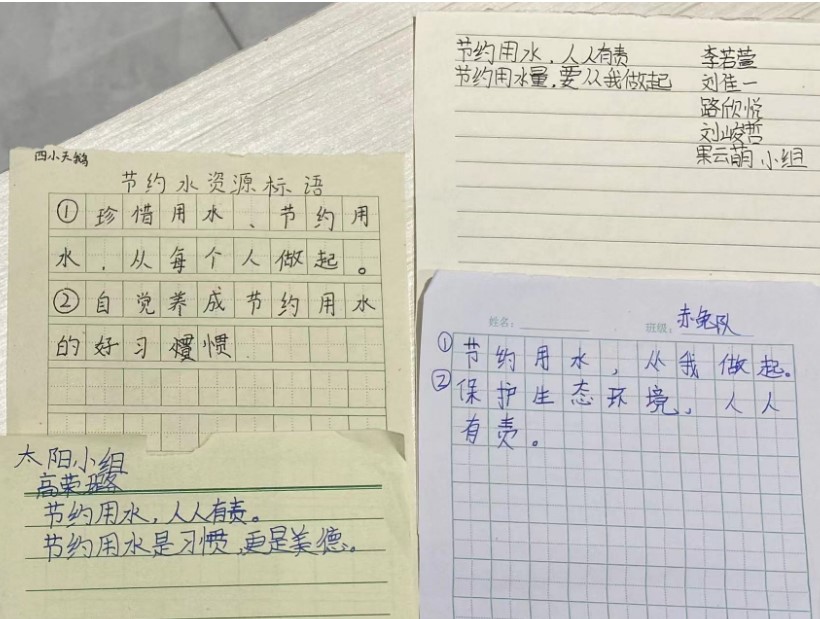 四小天鹅
节约水资源标语
①珍惜用水、节约用
水，从每个人做起。
②自觉养成节约用水
的好习惯
节约用水，人人有责 李若萱
节约用水量，要从我做起 刘佳一
路欣悦
刘峻哲
果云萌小组
太阳小组
高荣璐
节约用水，人人有责。
节约用水是习惯，更是美德。
姓名：
班级：赤兔队
①节约用水，从我做起。
②保护生态环境，人人
有责。